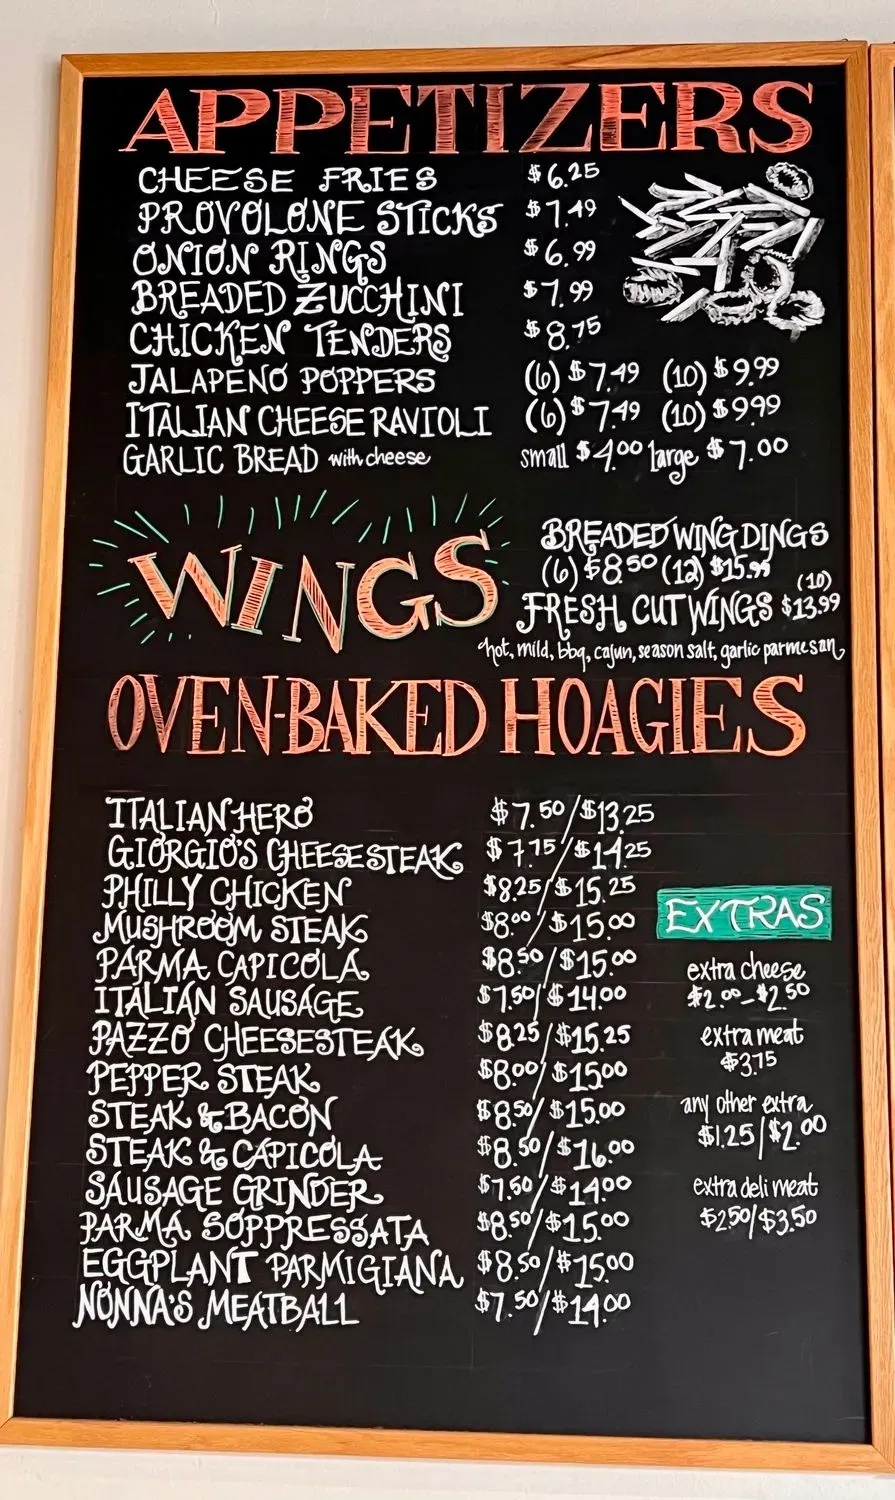 APPETIZERS
CHEESE FRIES $6.25
PROVOLONE STICKS $7.49
ONION RINGS $6.99
BREADED ZUCCHINI $7.99
CHICKEN TENDERS $8.75
JALAPENO POPPERS (6) $7.49 (10) $9.99
ITALIAN CHEESE RAVIOLI (6) $7.49 (10) $9.99
GARLIC BREAD with cheese small $4.00 large $7.00
WINGS
BREADED WING DINGS
(6) $8.50 (12) $15.99
FRESH CUT WINGS (10) $13.99
hot, mild, bbq, cajun, season salt, garlic parmesan
OVEN-BAKED HOAGIES
ITALIAN HERO $7.50/$13.25
GIORGIO'S CHEESESTEAK $7.75/$14.25
PHILLY CHICKEN $8.25/$15.25
MUSHROOM STEAK $8.00/$15.00
PARMA CAPICOLA $8.50/$15.00
ITALIAN SAUSAGE $7.50/$14.00
PAZZO CHEESESTEAK $8.25/$15.25
PEPPER STEAK $8.00/$15.00
STEAK & BACON $8.50/$15.00
STEAK & CAPICOLA $8.50/$16.00
SAUSAGE GRINDER $7.50/$14.00
PARMA SOPPRESSATA $8.50/$15.00
EGGPLANT PARMIGIANA $8.50/$15.00
NONNA'S MEATBALL $7.50/$14.00
EXTRAS
extra cheese
$2.00-$2.50
extra meat
$3.75
any other extra
$1.25/$2.00
extra deli meat
$2.50/$3.50